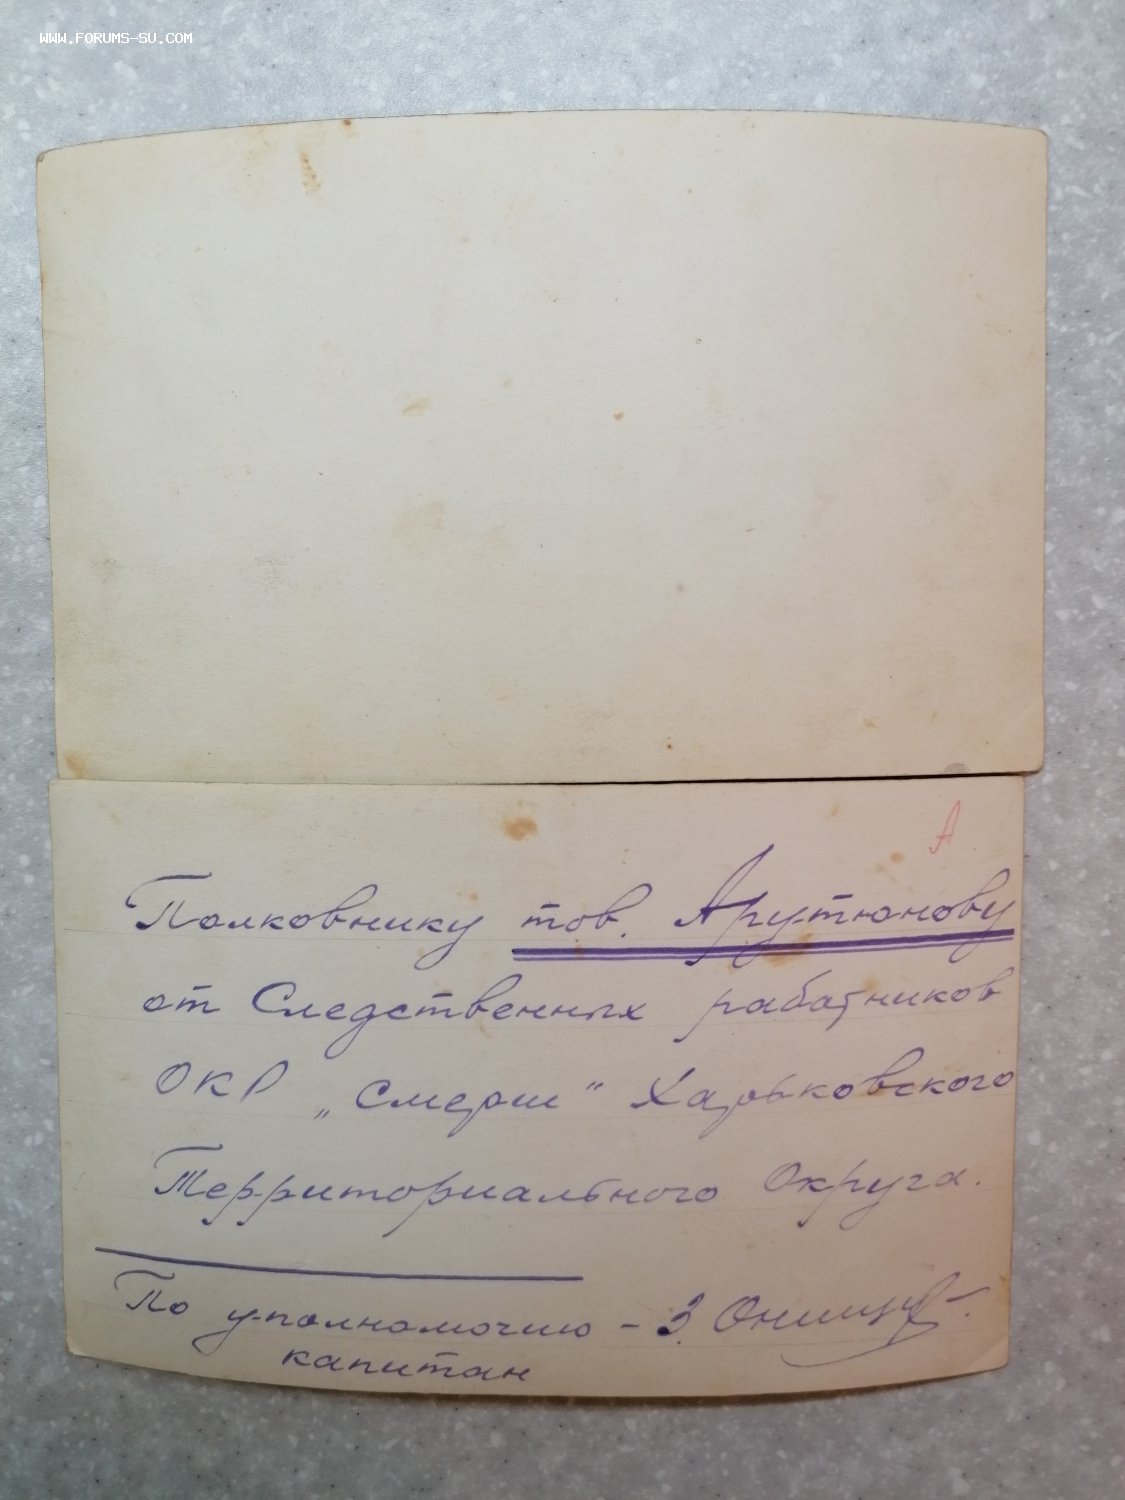 WWW.FORUMS-SU.COM
А
Полковнику тов. Арутюнову
от Следственных работников
ОКР „Смерш" Харьковского
Территориального Округа.
По уполномочию – З.
капитан